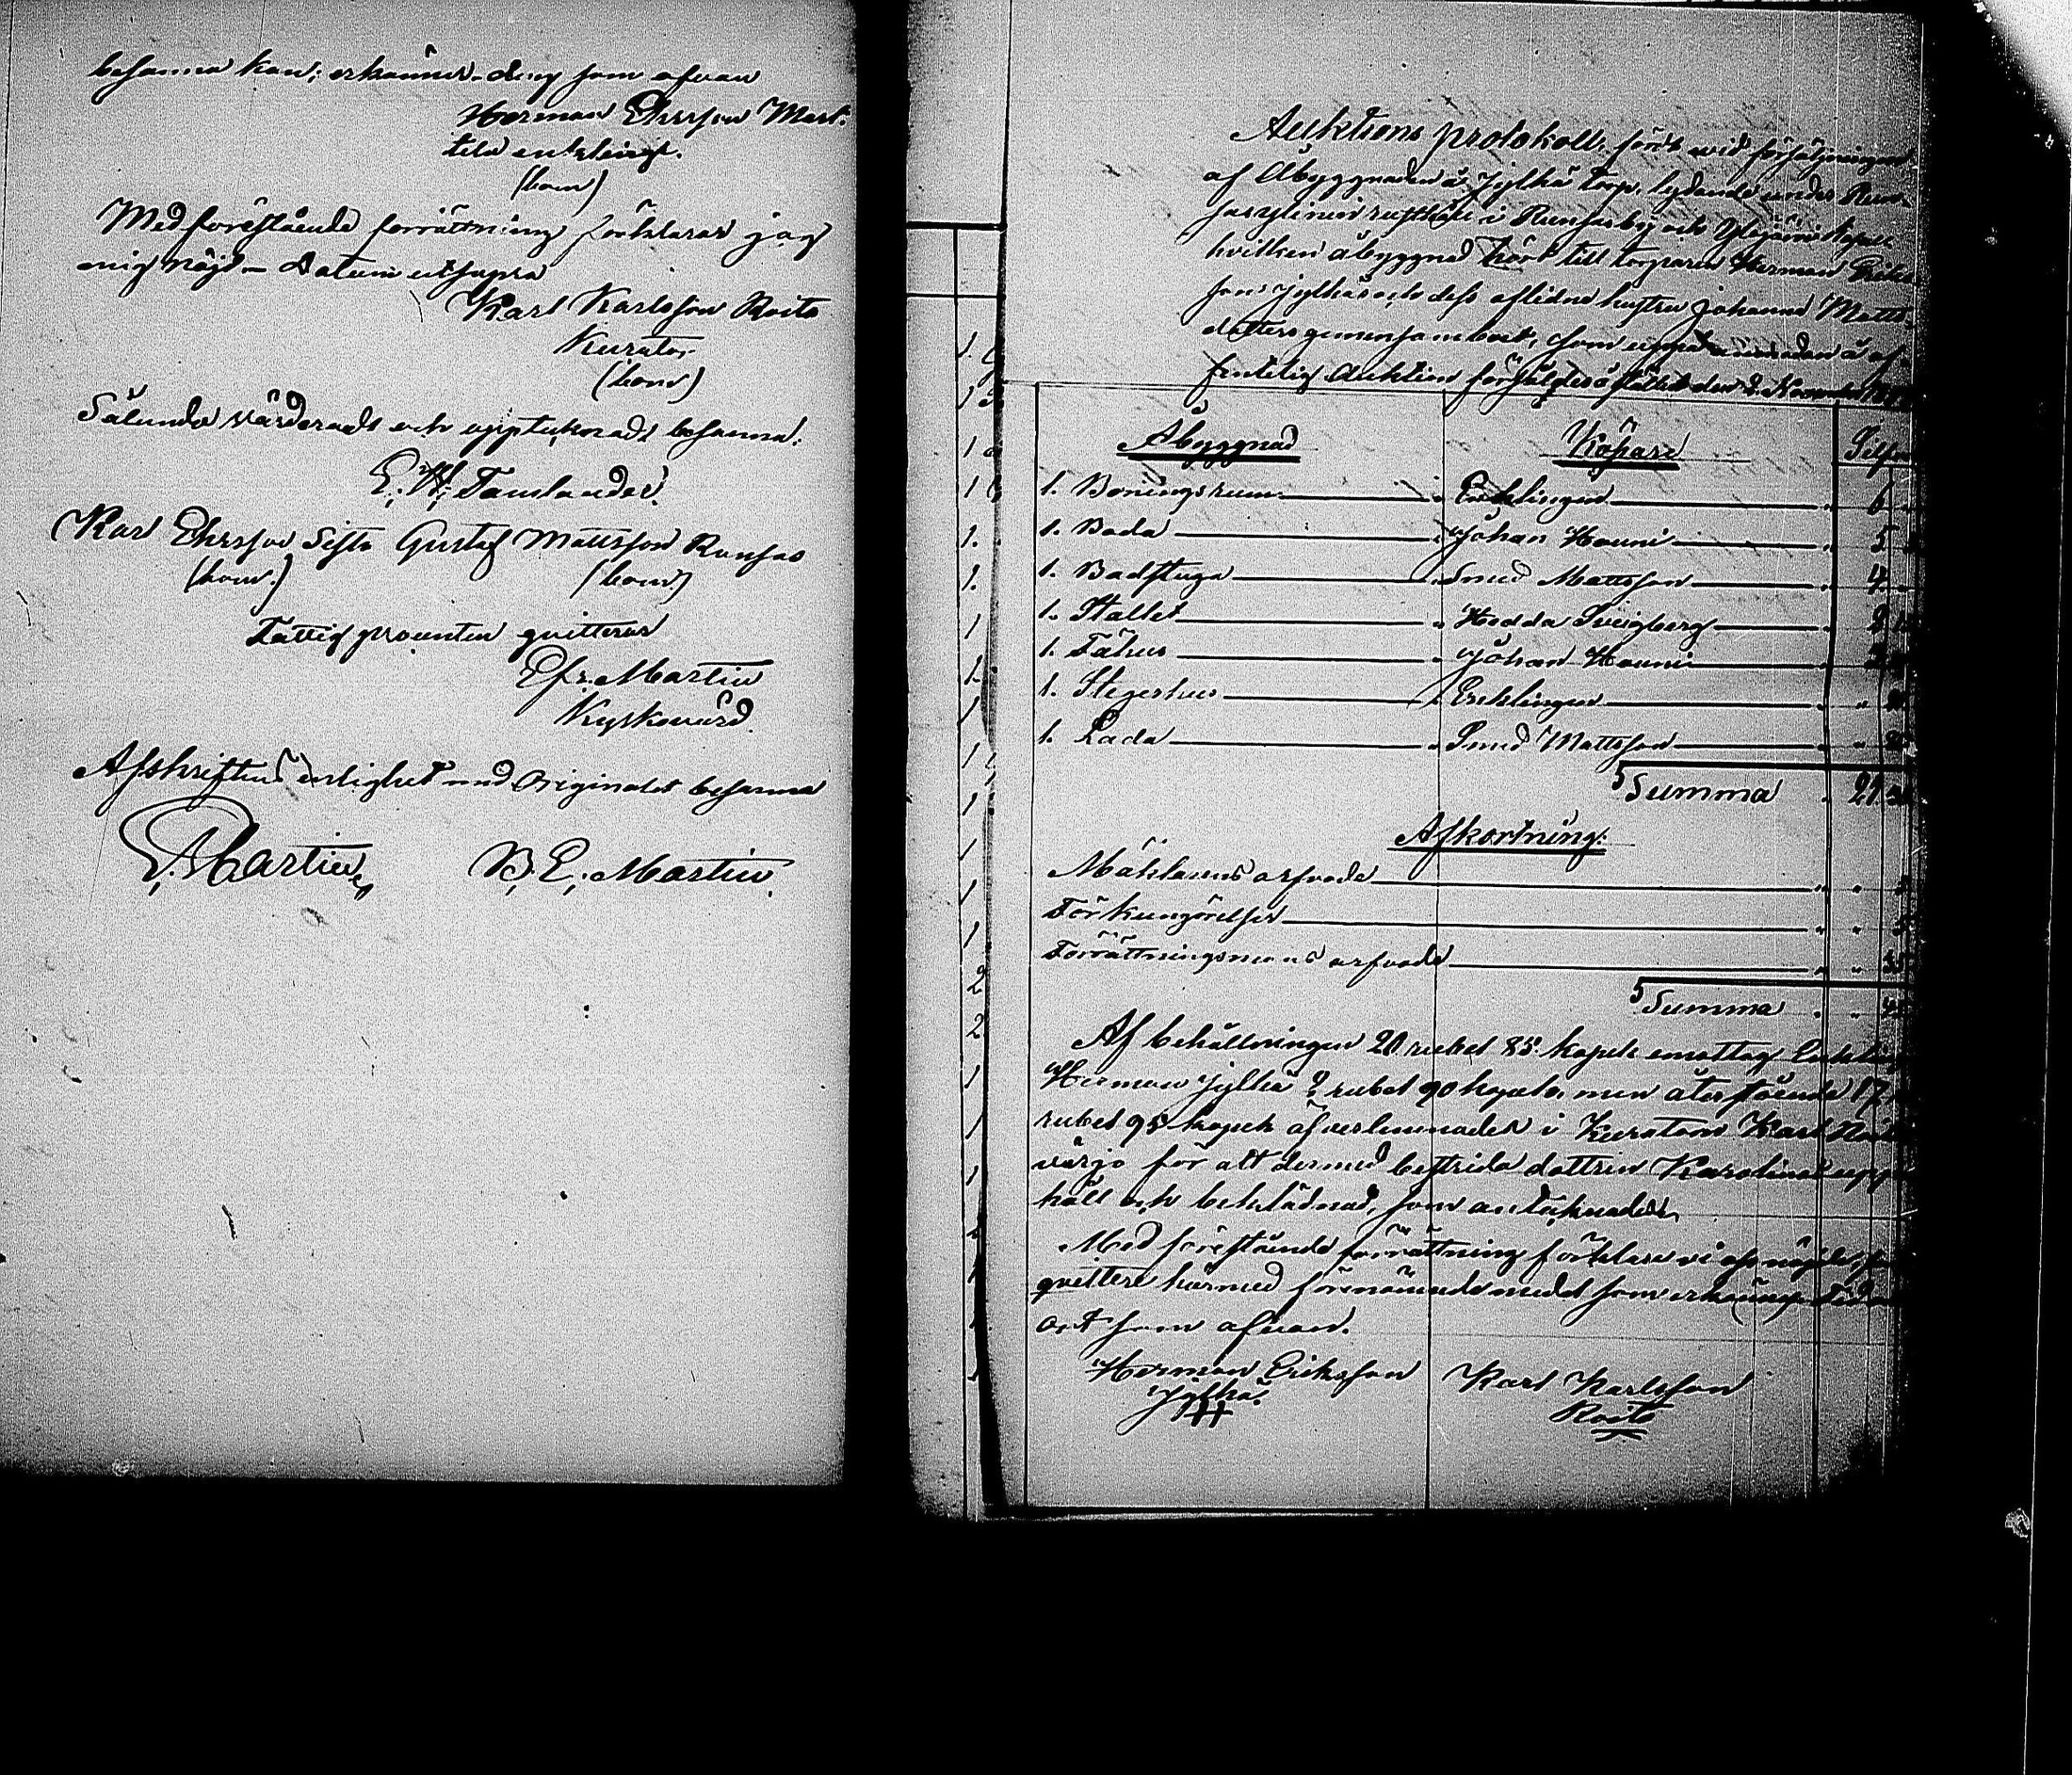 besanna kan; erkännes ding som ofvan
Herman Ehrsson Mart-
tila enklingi.
(bom)
Med föreståënde förrättning förklarar jag
mig nöjd — Datum utsupra
Karl Karlsson Rosto
Kurator
(bom)
Sålunda värderadt och upptecknadt besanna:
E. W. Tamlander.
Karl Ehrsson Sifto Gustaf Mattsson Runsas
(bom.) (bom)
Fattigprocenten qvitterar
Efr. Martin
Kyrkovärd.
Afskriftens enlighet med Originalet besanna
E. Martin B. E. Martin.
Auktions protokoll, fördt wid försäljningen
af Åbyggnaden å Jylhä torp, lydande under Run-
i Runsas by och Ylöjärvi
hvilken åbyggnad hört till torparen Herman Eriks-
son Jylhäs och dess aflidne hustru Johanna Matts-
dotters gemensamma bo, som å of-
fentelig Auktion försåldes å stället den 2 November
Åbyggnad Köpare Silfver
1. Boningsrum „ Enklingen „ 6
1. Boda „ Johan Houni „ 5
1. Badstuga „ Smed Mattsson „ 4
1. Stallet „ Hedda Sveigberg „ 2
1. Fähus „ Johan Houni „
1. Stegerhus „ Enklingen „ „
1. Lada „ Smed Mattsson „ „
Summa „ 21
Afkortning:
Mäklarens arfvode „ „
För kungörelser „ „
Förrättningsmans arfvode „ „
Summa „ „
Af behållningen 20 rubel 85 kopek emottog Enkling
Herman Jylhä 2 rubel 90 kopek, men återstående 17
rubel 95 kopek öfverlemnades i Kuratorn Karl
värjo för att dermed bestrida dottren Karolinas upp-
häll och beklädnad, som antecknades.
Med föreståënde förrättning förklare vi oss nöjde,
qvittere härmed förenämnde medel som erkännes Tid
Ort som ofvan.
Herman Eriksson Karl Karlsson
Jylhä Rosto